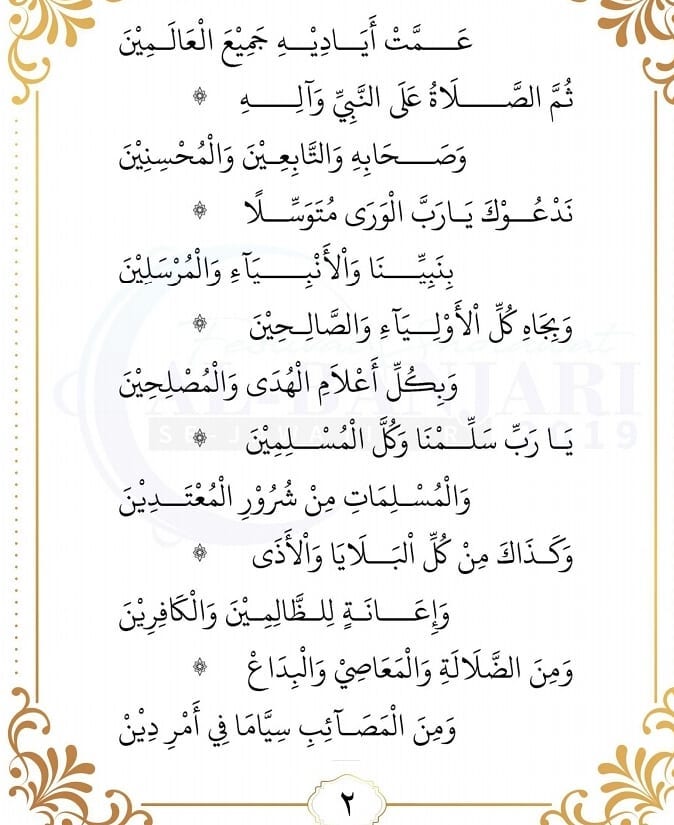 عَمَّتْ أَيَادِيْهِ جَمِيْعَ الْعَالَمِيْنَ
ثُمَّ الصَّلَاةُ عَلَى النَّبِيِّ وَآلِهِ
وَصَحَابِهِ وَالتَّابِعِيْنَ وَالْمُحْسِنِيْنَ
نَدْعُوْكَ يَارَبَّ الْوَرَى مُتَوَسِّلًا
بِنَبِيِّنَا وَالْأَنْبِيَآءِ وَالْمُرْسَلِيْنَ
وَبِجَاهِ كُلِّ الْأَوْلِيَآءِ وَالصَّالِحِيْنَ
وَبِكُلِّ أَعْلَامِ الْهُدَى وَالْمُصْلِحِيْنَ
يَا رَبِّ سَلِّمْنَا وَكُلَّ الْمُسْلِمِيْنَ
وَالْمُسْلِمَاتِ مِنْ شُرُوْرِ الْمُعْتَدِيْنَ
وَكَذَاكَ مِنْ كُلِّ الْبَلَايَا وَالْأَذَى
وَإِعَانَةٍ لِلظَّالِمِيْنَ وَالْكَافِرِيْنَ
وَمِنَ الضَّلَالَةِ وَالْمَعَاصِيْ وَالْبِدَاعْ
وَمِنَ الْمَصَآئِبِ سِيَّامَا فِي أَمْرِ دِيْنْ
٢
AL-BANJARI
2019